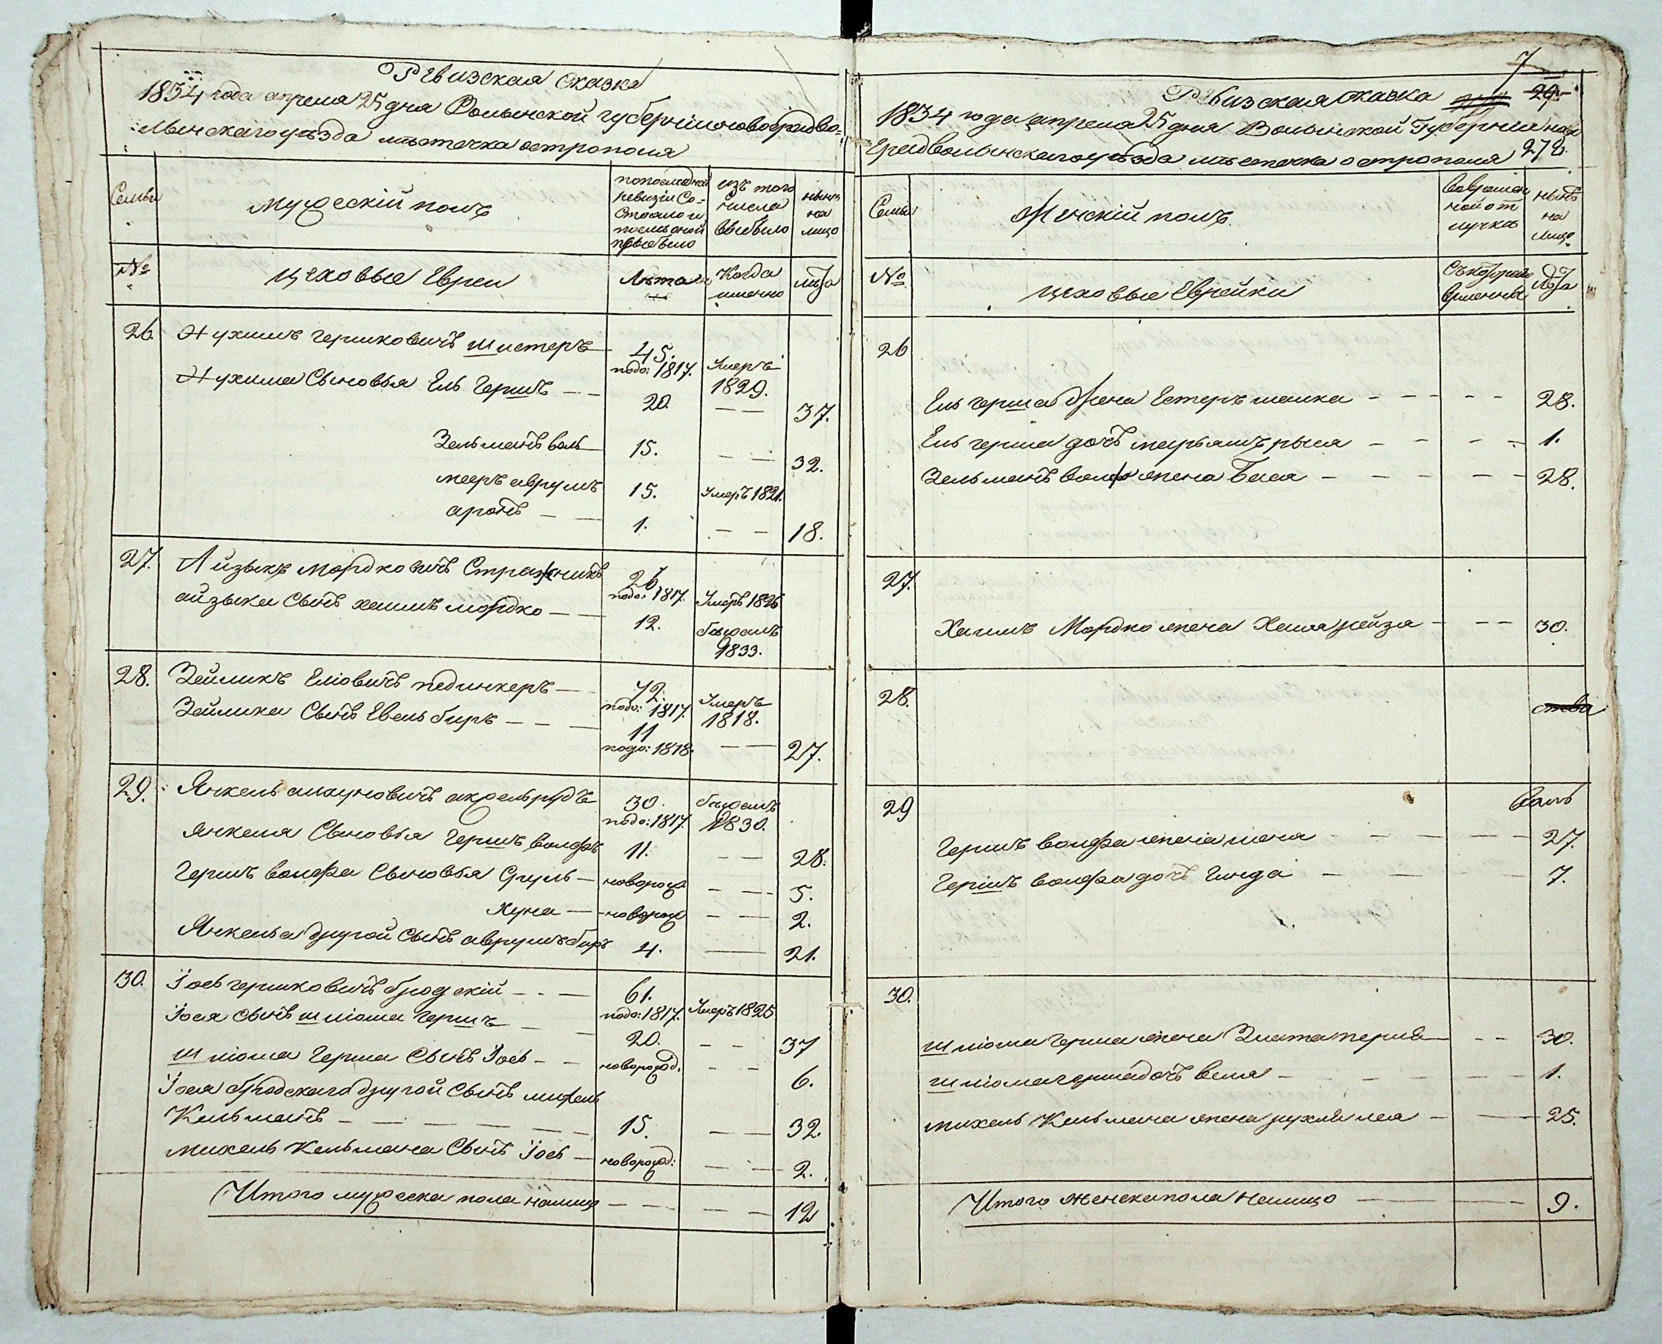 Ревизская сказка
1834 года апреля 25 дня Волынской губернии новоградво-
лынскаго уѣзда мѣстечка острополя
Семьи
Мужескій полъ
по последней ревизіи Состояло и после оной прибыло
изъ того числа выбыло
нынѣ на лицо
№
цеховые Евреи
Лѣта
Когда именно
лѣта
26. Нухимъ Гершковичъ шистеръ — 45. подо: 1817. Умеръ 1829.
Нухима Сыновья Ель Гершъ — 20. — — 37.
Зельманъ волъ — 15. — — 32.
мееръ аврумъ 15. Умеръ 1821.
аронъ — — 1. — — 18.
27. Айзыкъ Мордковичъ Стражникъ 26. подо: 1817. Умеръ 1826
айзыка Сынъ хаимъ мордко — 12. 1833.
28. Зейликъ Еліовичъ 72. подо: 1817. Умеръ 1818.
Зейлика Сынъ — — — 11 подо: 1818. — — 27.
29. Янкель 30. подо: 1817. 1830.
Янкеля Сыновья Гершъ волфъ 11. — — 28.
Гершъ волфа Сыновья Сруль — новорож — — 5.
хуна — новорож — — 2.
Янкеля другой Сынъ аврумъ беръ 4. — 21.
30. Іось гершковичъ бродскій — — 61. подо: 1817. Умеръ 1825
Іося сынъ шліома Гершъ — 20. — — 37
шліома Герша Сынъ Іось — — новорожд. — — 6.
Іося бродскаго другой Сынъ михель
Кельманъ — — — — 15. — — 32.
михель Кельмана Сынъ Іось — новорожд: — — 2.
Итого мужеска пола налицо — — — — 12
7
29
Ревизская сказка
1834 года апреля 25 дня Волынской Губерніи ново
градволынскаго уѣзда мѣстечка острополя 272.
Семьи
Женскій полъ
во временной отлучкѣ
нынѣ на лицо
№
цеховые Еврейки
Съ котораго времени
Лѣта
26
Ель герша жена Естеръ малка — — — — 28.
Ель герша дочъ марьямъ рыся — — — — 1.
Зельманъ волфа жена Бася — — — — 28.
27.
Хаимъ Мордко жена Хаия рейза — — — 30.
28.
29
Гершъ волфа жена — — — — 27.
Гершъ волфа дочъ Гинда — — — 7.
30.
шліома Герша жена Злата перля — — — 30.
шліома герша дочъ вея — — — — 1.
михель Кельмана жена рухля лея — — — 25.
Итого женска пола налицо — — 9.